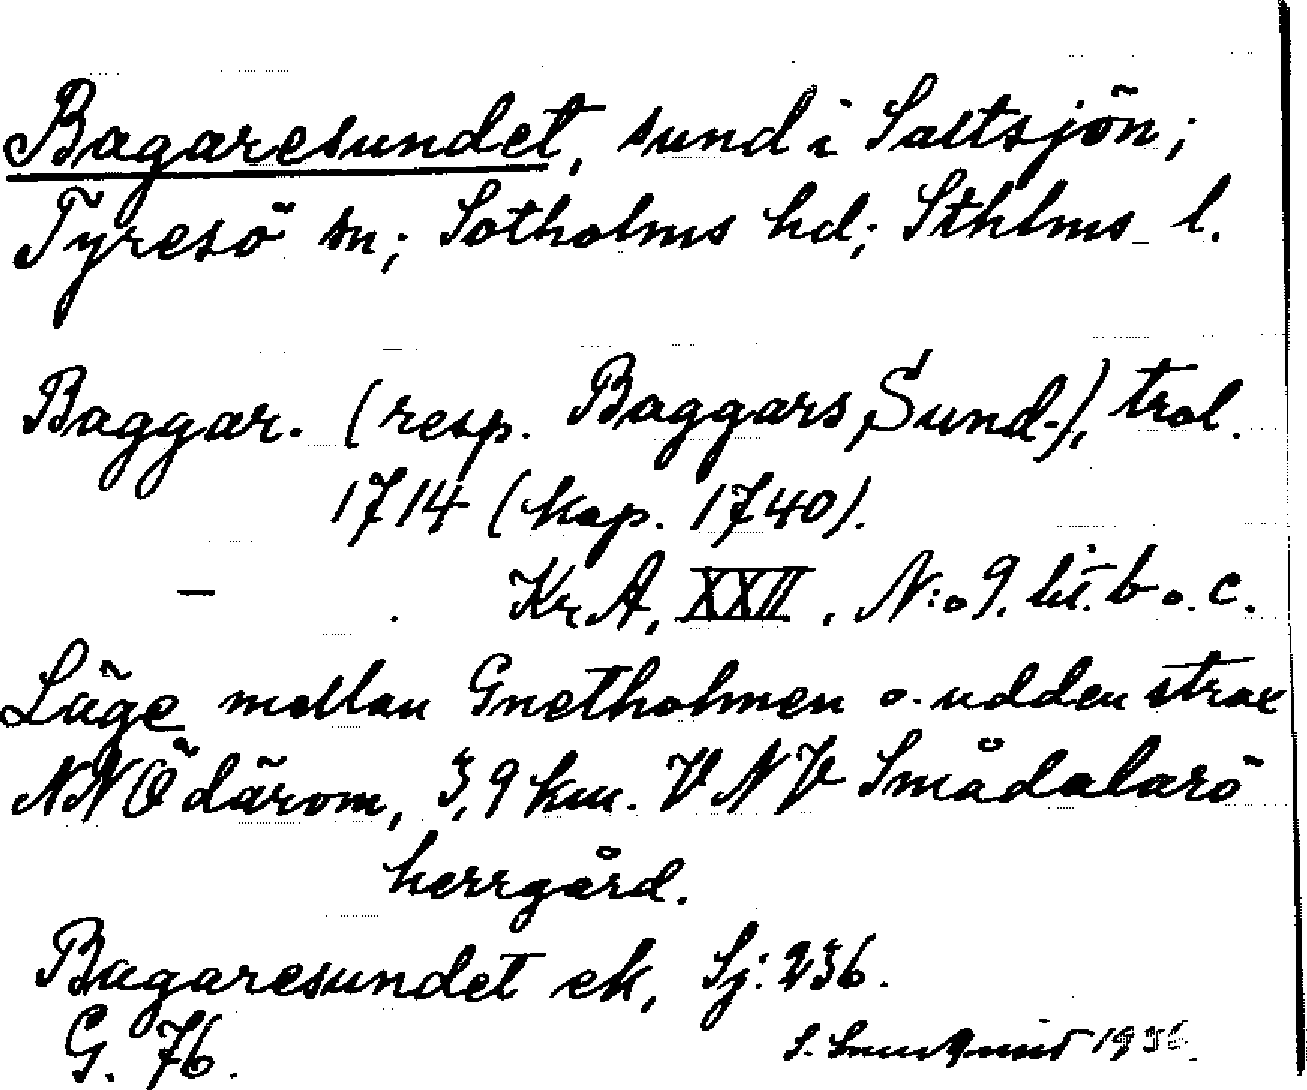 Bagaresundet, sund i Saltsjön;
Tyresö sn; Sotholms hd; Sthlms l.
Baggar. (resp. Baggars Sund.), trol.
1714 (kop. 1740).
— Kr.A, XXII, N:o 9. lit. b o. c.
Läge mellan Gnetholmen o. udden strax
NNÖ därom, 3,9 km. VNV Smådalarö
herrgård.
Bagaresundet ek, Sj: 236.
G. 76.
S. 1936.